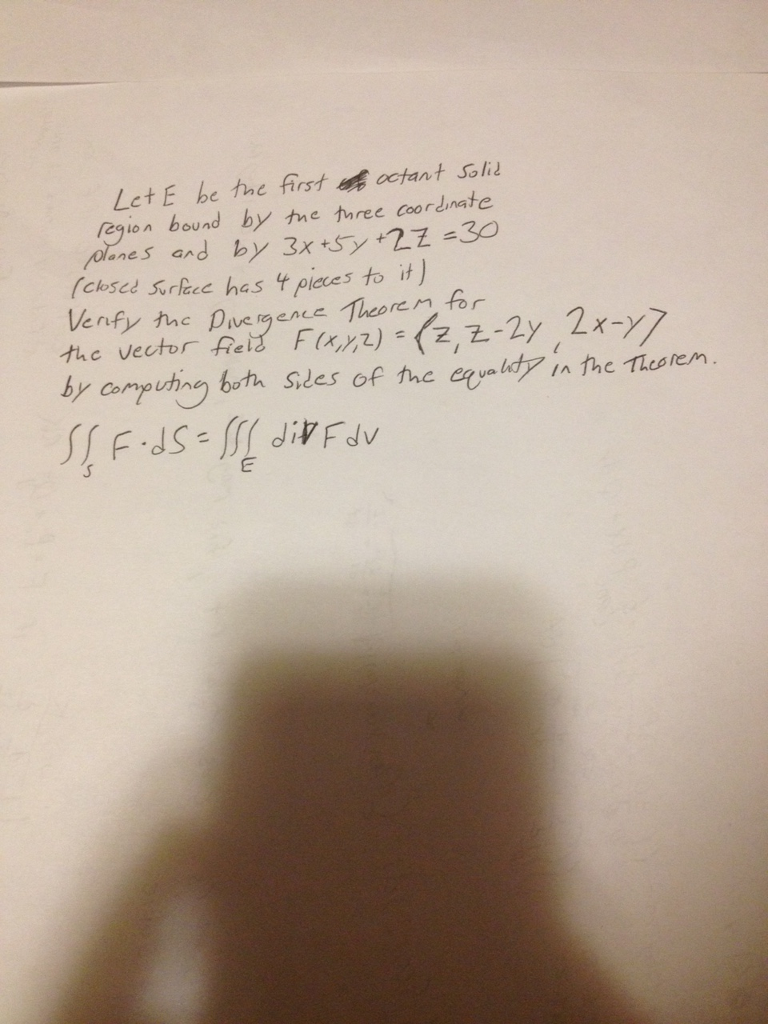 Let E be the first octant solid
region bound by the three coordinate
planes and by 3x+5y+2z=30
(closed surface has 4 pieces to it)
Verify the Divergence Theorem for
the vector field F(x,y,z) = ⟨z, z-2y, 2x-y⟩
by computing both sides of the equality in the Theorem.
∬_S F·dS = ∭_E div F dv